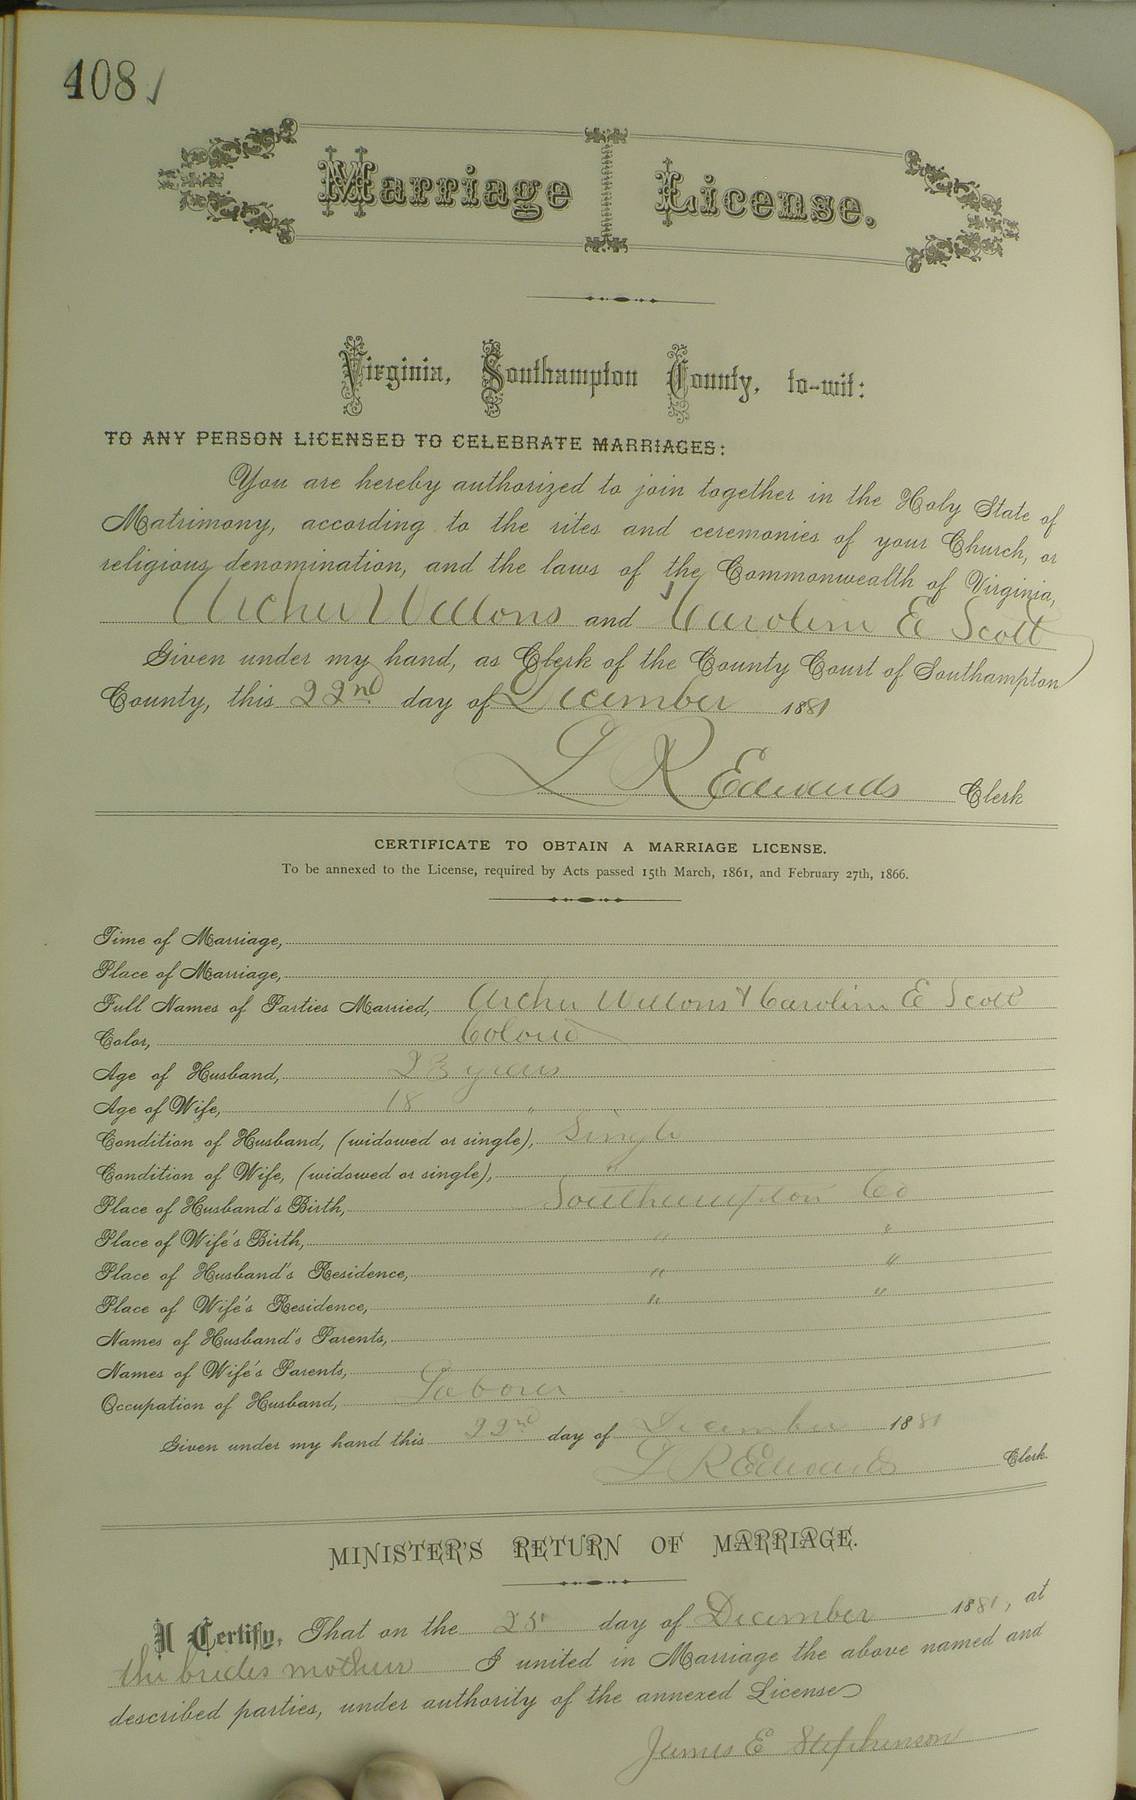 408
Marriage License.
Virginia, Southampton County, to-wit:
TO ANY PERSON LICENSED TO CELEBRATE MARRIAGES:
You are hereby authorized to join together in the Holy State of
Matrimony, according to the rites and ceremonies of your Church, or
religious denomination, and the laws of the Commonwealth of Virginia,
Archer and Caroline E Scott
Given under my hand, as Clerk of the County Court of Southampton
County, this 22nd day of December 1881
L R Edwards Clerk
CERTIFICATE TO OBTAIN A MARRIAGE LICENSE.
To be annexed to the License, required by Acts passed 15th March, 1861, and February 27th, 1866.
Time of Marriage,
Place of Marriage,
Full Names of Parties Married, Archer & Caroline E Scott
Color, Colored
Age of Husband, 23 years
Age of Wife, 18 "
Condition of Husband, (widowed or single), Single
Condition of Wife, (widowed or single), "
Place of Husband's Birth, Southampton Co
Place of Wife's Birth, " "
Place of Husband's Residence, " "
Place of Wife's Residence, " "
Names of Husband's Parents,
Names of Wife's Parents,
Occupation of Husband, Laborer
Given under my hand this 22nd day of December 1881
L R Edwards Clerk
MINISTER'S RETURN OF MARRIAGE.
I Certify, That on the day of December 1881, at
the brides mother I united in Marriage the above named and
described parties, under authority of the annexed License
James E Stephenson